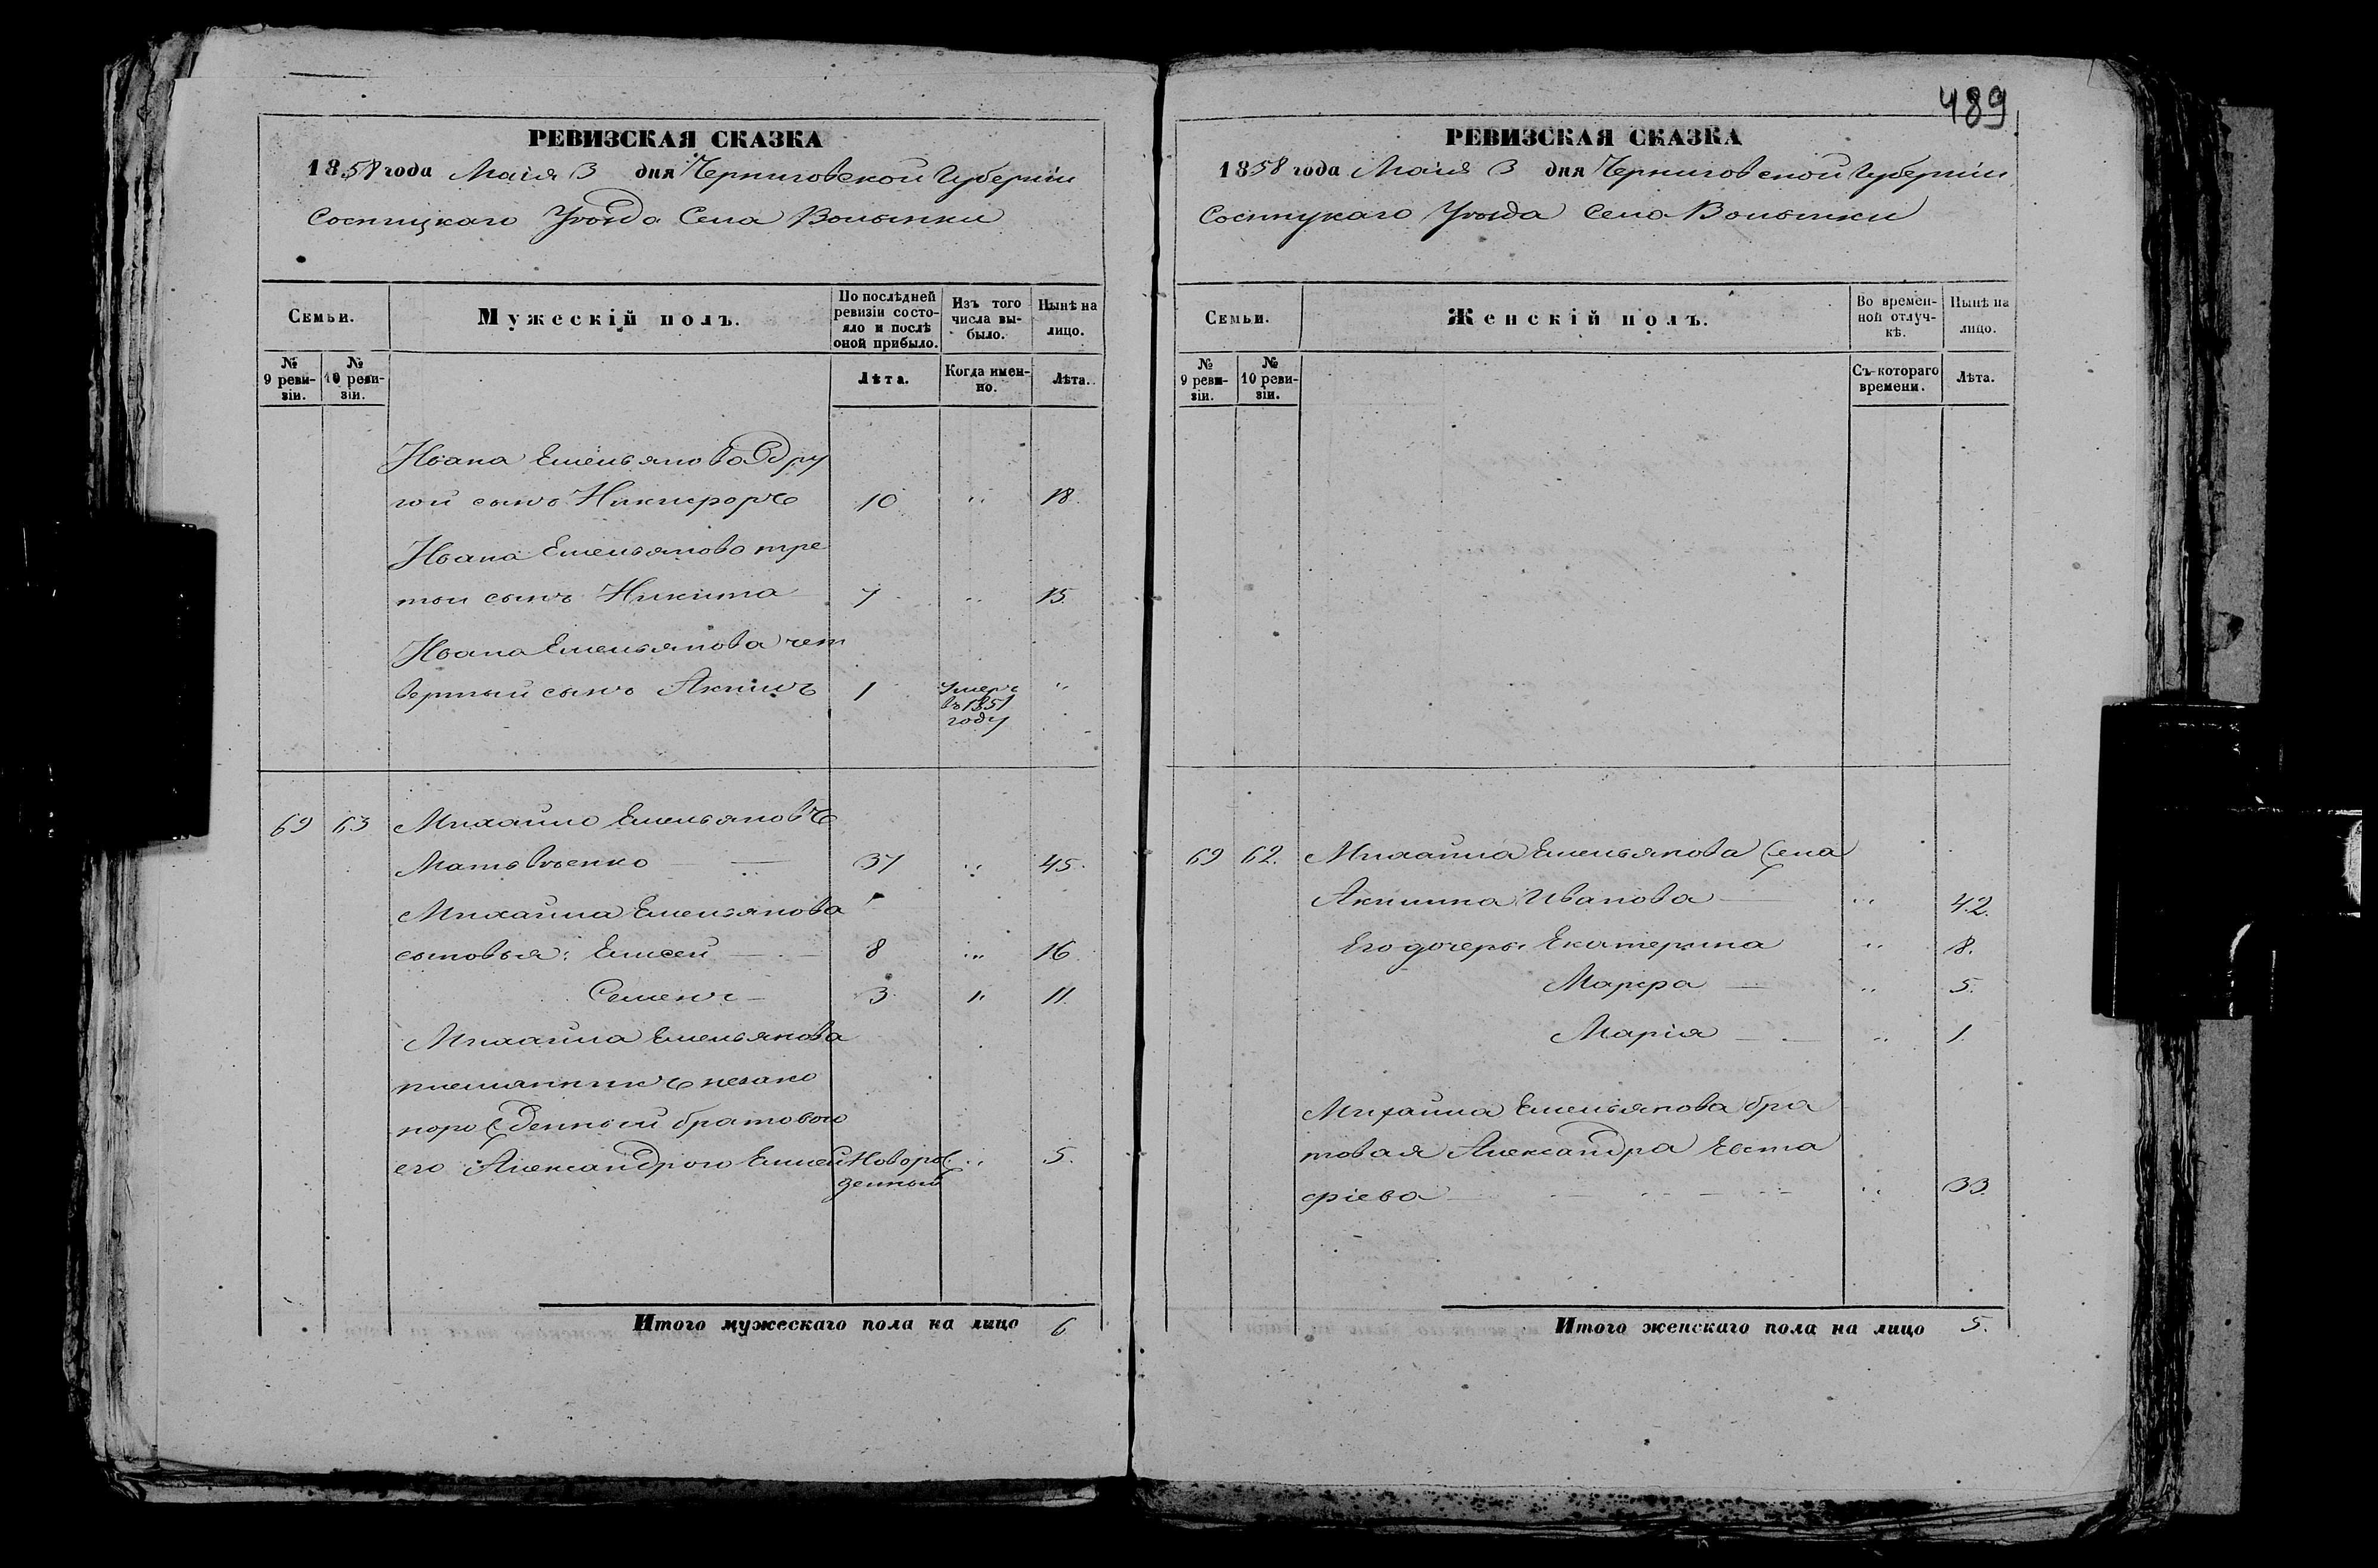 489
РЕВИЗСКАЯ СКАЗКА
1858 года Маія 3 дня Черниговской Губерніи
Сосницкаго Уѣзда Села Волынки
Семьи.
Мужескій полъ.
По послѣдней ревизіи состояло и послѣ оной прибыло.
Изъ того числа выбыло.
Нынѣ на лицо.
№ 9 ревизіи.
№ 10 ревизіи.
Лѣта.
Когда именно.
Лѣта.
Ивана Емельянова дру
гой сынъ Никифоръ 10 " 18.
Ивана Емельянова тре
тои сынъ Никита 7 " 15.
Ивана Емельянова чет
вертый сынъ Акимъ 1 умеръ въ 1851 году "
69 63 Михайло Емельяновъ
Матвѣенко — 37 " 45.
Михайла Емельянова
сыновья: Елисей — 8 " 16
Семенъ — 3 " 11.
Михайла Емельянова
племянникъ незако
норожденный братовою
его Александрою Елисей Новорож
денный " 5.
Итого мужескаго пола на лицо 6
РЕВИЗСКАЯ СКАЗКА
1858 года Маія 3 дня Черниговской Губерніи
Сосницкаго Уѣзда Села Волынки
Семьи.
Женскій полъ.
Во временной отлучкѣ.
Нынѣ на лицо.
№ 9 ревизіи.
№ 10 ревизіи.
Съ котораго времени.
Лѣта.
69 62. Михайла Емельянова жена
Акилина Иванова — " 42.
Его дочери Екатерина " 8.
Марфа — " 5.
Марія — " 1.
Михайла Емельянова бра
товая Александра Еста
фіева — " 33.
Итого женскаго пола на лицо 5.